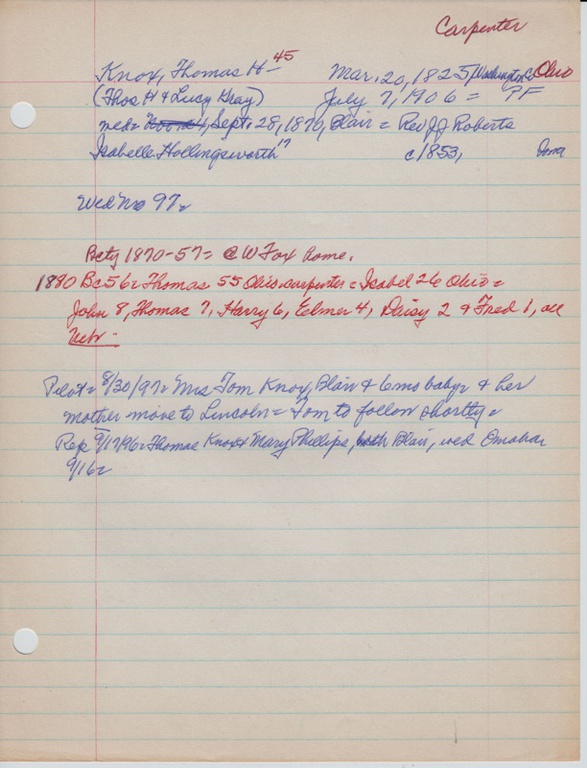 Carpenter
Knox, Thomas H - 45 Mar. 20, 1825 Washington Co Ohio
(Thos H & Lucy Gray) July 7, 1906 = PF
wed = Sept. 28, 1870, Blair = Rev JJ Roberts
Isabelle Hollingsworth 17 c1853, Iowa
Wed No 97 =
Bcty 1870-57 = @ W Fox home.
1880 Bc 56 = Thomas 55 Ohio = carpenter = Isabel 26 Ohio =
John 8, Thomas 7, Harry 6, Elmer 4, Daisy 2 & Fred 1, all
Nebr -
Pilot = 8/30/97 = Mrs Tom Knox, Blair & 6 mo baby = & her
mother move to Lincoln = Tom to follow shortly =
Rep 9/17/96 = Thomas Knox x Mary Phillips, both Blair, wed Omaha =
9/16 =